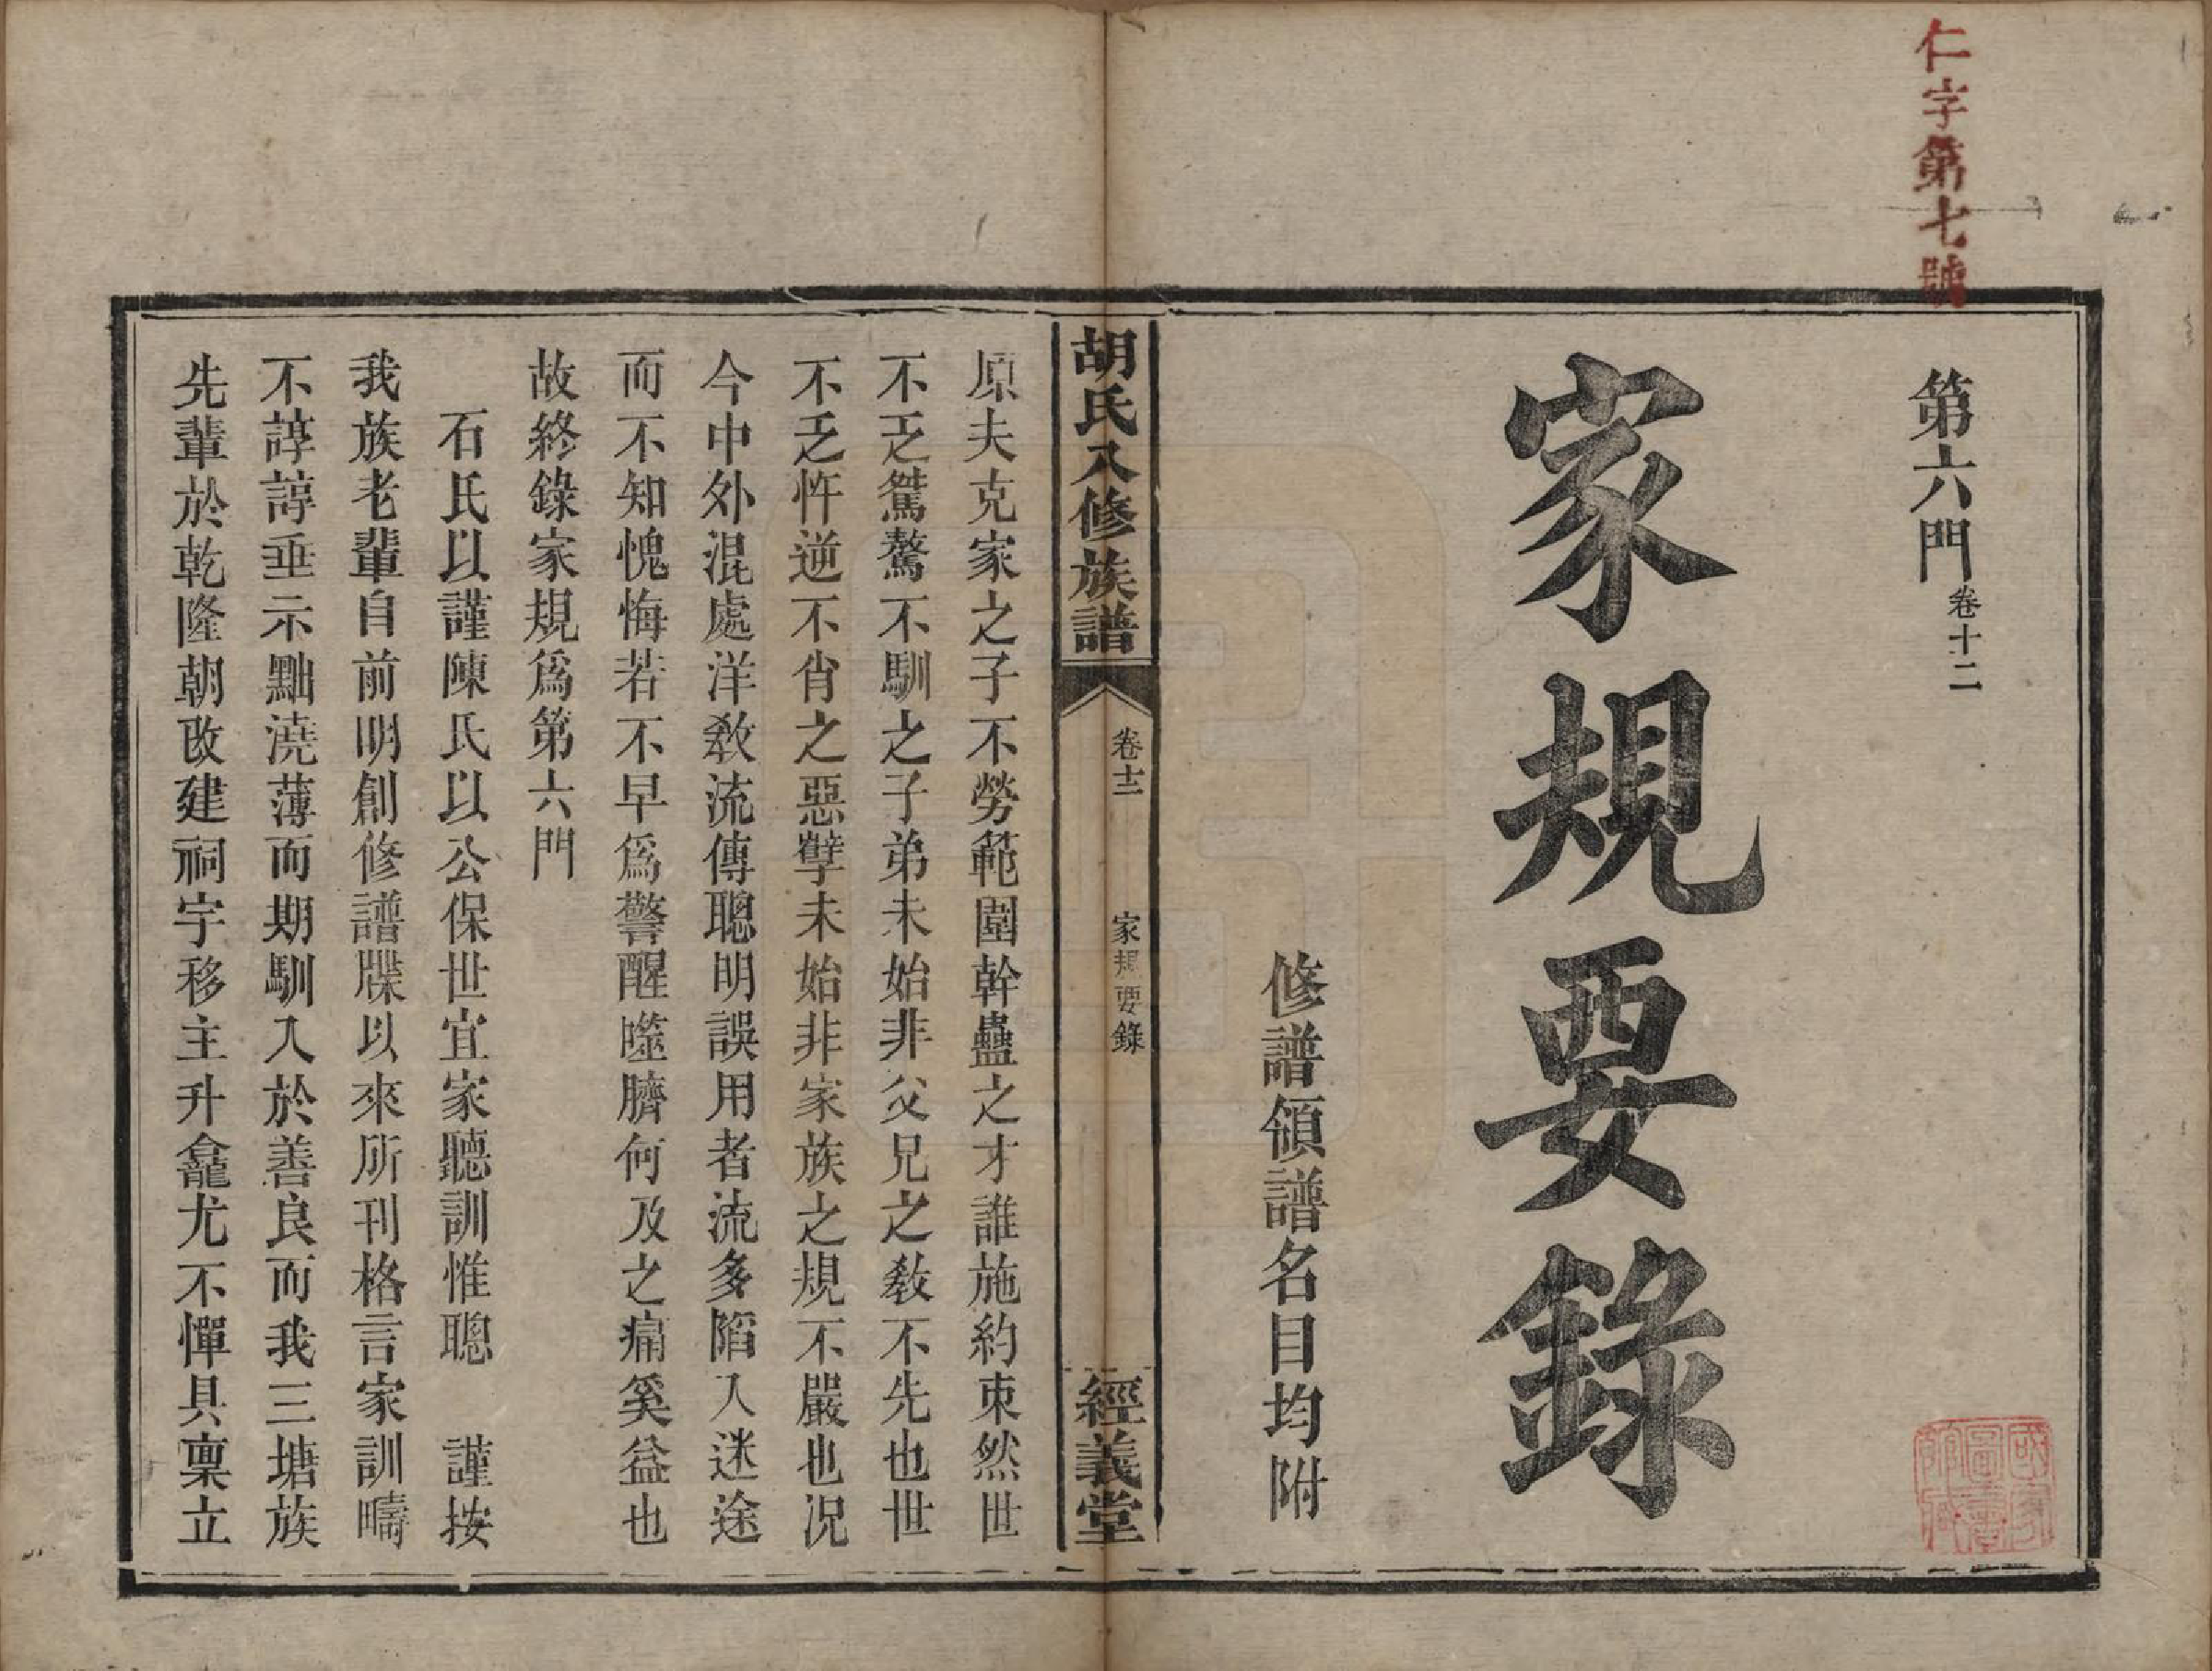 仁字第七號
第六門卷十二
家規要錄
修譜領譜名目均附
胡氏八修族譜
卷十二
家規要錄
經義堂
原夫克家之子不勞範圍幹蠱之才誰施約束然世
不乏駕驁不馴之子弟未始非父兄之教不先也世
不乏忤逆不肖之惡孽未始非家族之規不嚴也况
今中外混處洋教流傳聰明誤用者流多陷入迷途
而不知愧悔若不早爲警醒噬臍何及之痛奚益也
故終錄家規爲第六門
石氏以謹陳氏以公保世宜家聽訓惟聰　謹按
我族老輩自前明創修譜牒以來所刊格言家訓疇
不諄諄垂示黜澆薄而期馴入於善良而我三塘族
先輩於乾隆朝改建祠宇移主升龕尤不憚具稟立
國家圖書館藏